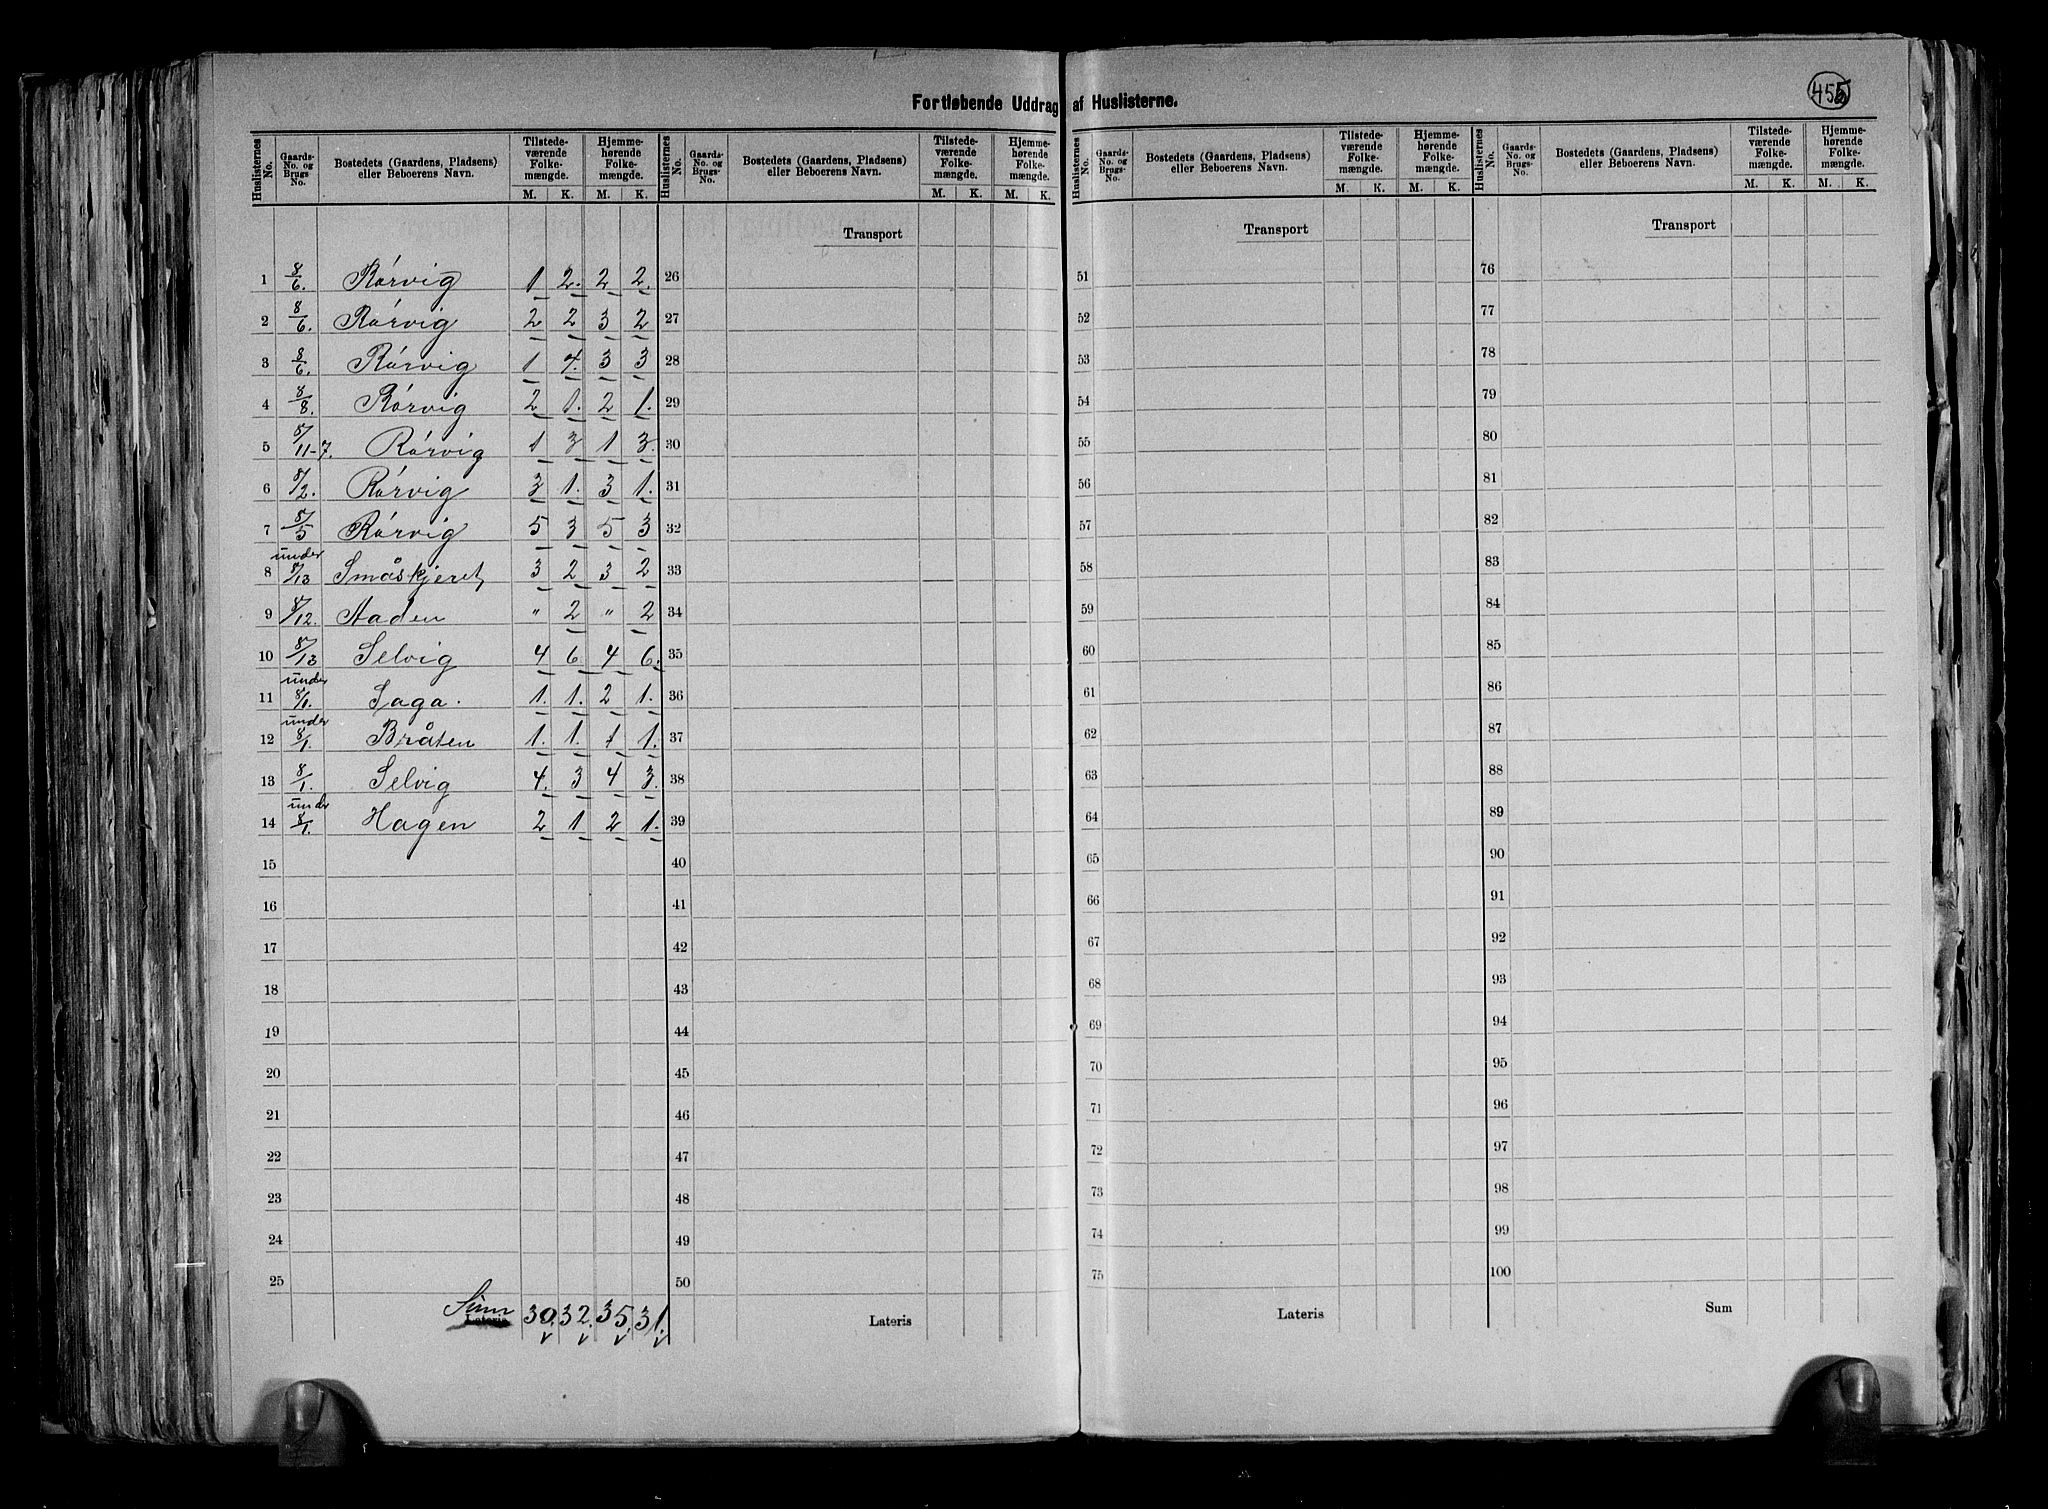 455
Fortløbende Uddrag af Huslisterne.
Huslisternes No. | Gaards-No. og Brugs-No. | Bostedets (Gaardens, Pladsens) eller Beboerens Navn. | Tilstedeværende Folkemængde. M. K. | Hjemmehørende Folkemængde. M. K.
1 8/6. Rórvig 1 2. 2 2.
2 8/6. Rórvig 2 2 3 2
3 8/6. Rórvig 1 4. 3 3
4 8/8. Rórvig 2 1. 2 1.
5 8/11-7. Rórvig 1 3 1 3.
6 8/2. Rórvig 3 1. 3 1.
7 8/5 Rórvig 5 3 5 3
8 under 8/13 Småskjeret 3 2 3 2
9 8/12. Aaden " 2 " 2
10 8/13 Selvig 4 6 4 6.
11 under 8/1. Saga. 1. 1. 2 1.
12 under 8/1. Bråten 1. 1. 1 1.
13 8/1. Selvig 4. 3 4 3.
14 under 8/1. Hagen 2 1 2 1.
15
16
17
18
19
20
21
22
23
24
25
Sum Lateris 30. 32. 35. 31.
Huslisternes No. | Gaards-No. og Brugs-No. | Bostedets (Gaardens, Pladsens) eller Beboerens Navn. | Tilstedeværende Folkemængde. M. K. | Hjemmehørende Folkemængde. M. K.
Transport
26
27
28
29
30
31
32
33
34
35
36
37
38
39
40
41
42
43
44
45
46
47
48
49
50
Lateris
Huslisternes No. | Gaards-No. og Brugs-No. | Bostedets (Gaardens, Pladsens) eller Beboerens Navn. | Tilstedeværende Folkemængde. M. K. | Hjemmehørende Folkemængde. M. K.
Transport
51
52
53
54
55
56
57
58
59
60
61
62
63
64
65
66
67
68
69
70
71
72
73
74
75
Lateris
Huslisternes No. | Gaards-No. og Brugs-No. | Bostedets (Gaardens, Pladsens) eller Beboerens Navn. | Tilstedeværende Folkemængde. M. K. | Hjemmehørende Folkemængde. M. K.
Transport
76
77
78
79
80
81
82
83
84
85
86
87
88
89
90
91
92
93
94
95
96
97
98
99
100
Sum